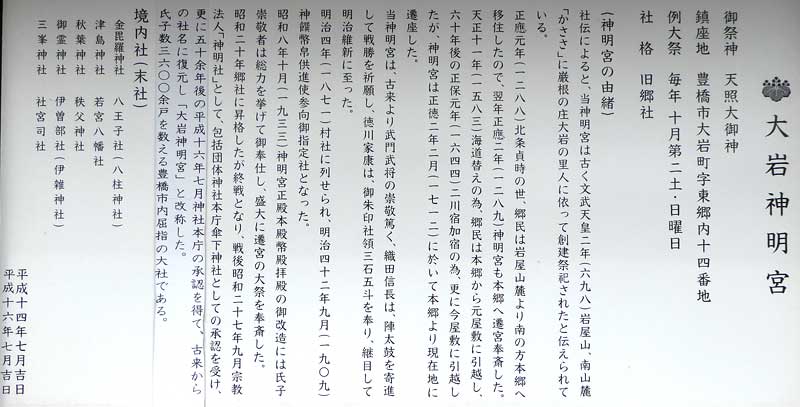 大岩神明宮
御祭神　天照大御神
鎮座地　豊橋市大岩町字東郷内十四番地
例大祭　毎年 十月第二土・日曜日
社　格　旧郷社
(神明宮の由緒)
社伝によると、当神明宮は古く文武天皇二年(六九八)岩屋山、南山麓
「かささ」に巌根の庄大岩の里人に依って創建祭祀されたと伝えられて
いる。
正應元年(一二八八)北条貞時の世、郷民は岩屋山麓より南の方本郷へ
移住したので、翌年正應二年(一二八九)神明宮も本郷へ遷宮奉斎した。
天正十一年(一五八三)海道替えの為、郷民は本郷から元屋敷に引越し、
六十年後の正保元年(一六四四)二川宿加宿の為、更に今屋敷に引越し
たが、神明宮は正徳二年二月(一七一二)に於いて本郷より現在地に
遷座した。
当神明宮は、古来より武門武将の崇敬篤く、織田信長は、陣太鼓を寄進
して戦勝を祈願し、徳川家康は、御朱印社領三石五斗を奉り、継目して
明治維新に至った。
明治四年(一八七一)村社に列せられ、明治四十二年九月(一九〇九)
神饌幣帛供進使参向御指定社となった。
昭和八年十月(一九三三)神明宮正殿本殿幣殿拝殿の御改造には氏子
崇敬者は総力を挙げて御奉仕し、盛大に遷宮の大祭を奉斎した。
昭和二十年郷社に昇格したが終戦となり、戦後昭和二十七年九月宗教
法人「神明社」として、包括団体神社本庁傘下神社としての承認を受け、
更に五十余年後の平成十六年七月神社本庁の承認を得て、古来から
の社名に復元し「大岩神明宮」と改称した。
氏子数三六〇〇余戸を数える豊橋市内屈指の大社である。
境内社(末社)
金毘羅神社　八王子社(八柱神社)
津島神社　若宮八幡社
秋葉神社　秩父神社
御霊神社　伊曽部社(伊雑神社)
三峯神社　社宮司社
平成十四年七月吉日
平成十六年七月吉日